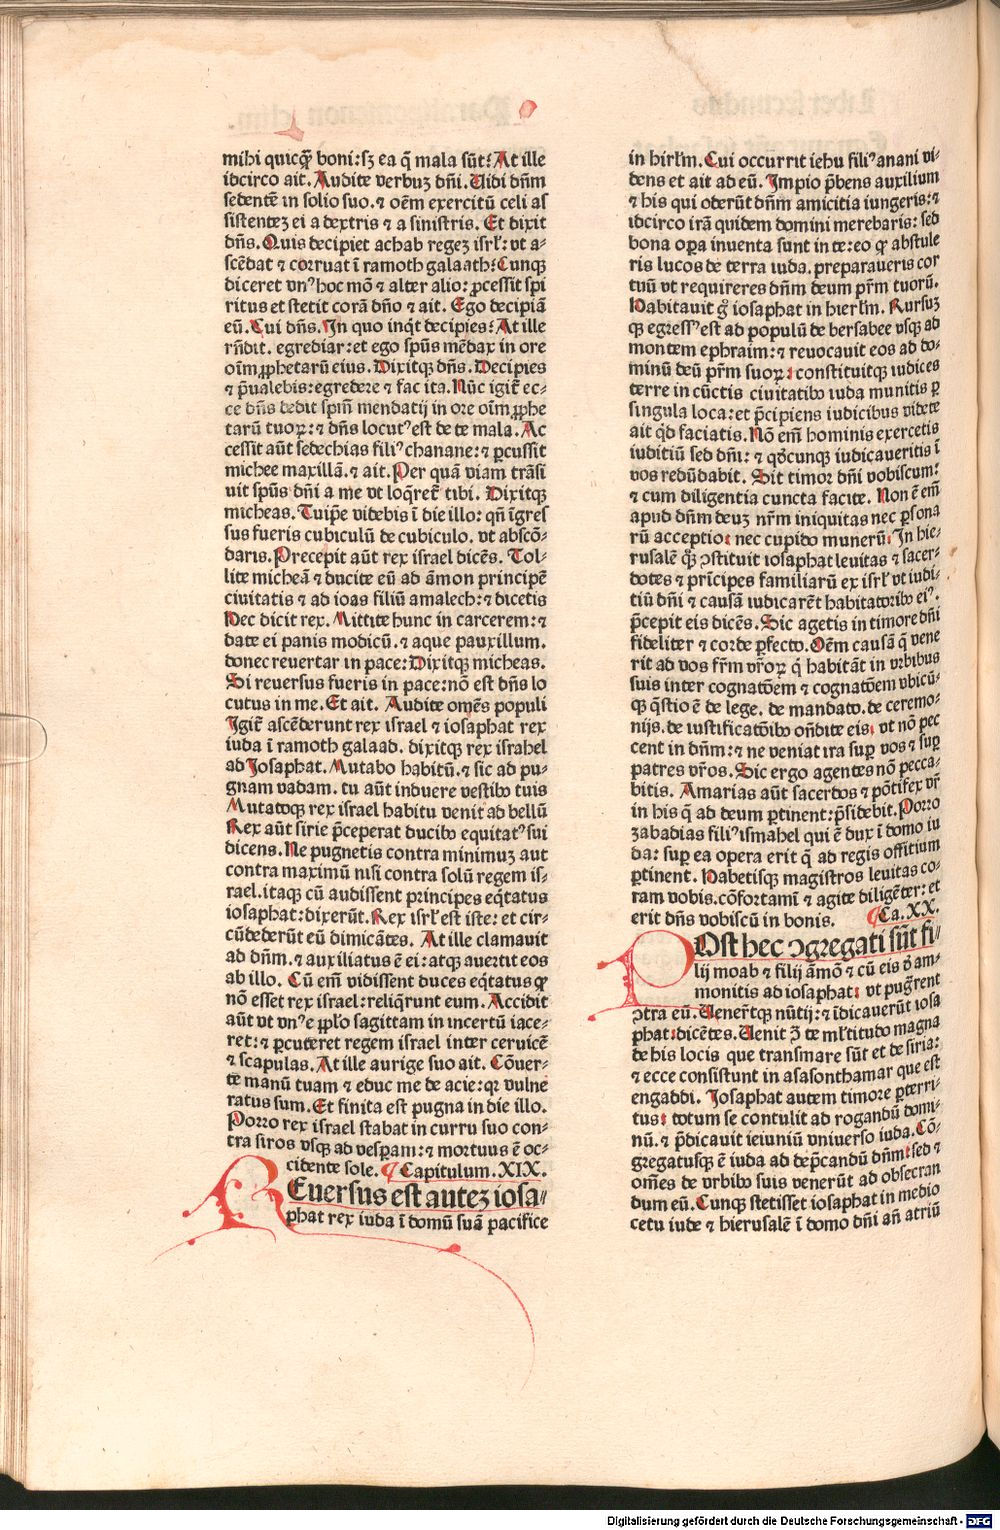 mihi quicq̄ꝫ boni:sꝫ ea q̄ mala sūt? At ille
idcirco ait. Audite verbuꝫ dn̄i. Uidi dn̄m
sedentē in solio suo.⁊ oēm exercitū celi as
sistenteꝫ ei a dextris ⁊ a sinistris. Et dixit
dn̄s. Quis decipiet achab regeꝫ isrł: vt a-
scēdat ⁊ corruat ī ramoth galaath? Cunqꝫ
diceret vnꝰ hoc mō ⁊ alter alio: ꝓcessit spi
ritus et stetit corā dn̄o ⁊ ait. Ego decipiā
eū. Cui dn̄s. In quo inqͥt decipies? At ille
rn̄dit. egrediar:et ego spūs mēdax in ore
oīm ꝓphetarū eius. Dixitqꝫ dn̄s. Decipies
⁊ p̄ualebis:egredere ⁊ fac ita. Nūc igit̄ ec-
ce dn̄s dedit spm̄ mendatij in ore oīm ꝓphe
tarū tuoꝝ:⁊ dn̄s locutꝰ est de te mala. Ac
cessit aūt sedechias filiꝰ chanane:⁊ ꝑcussit
michee maxillā.⁊ ait. Per quā viam trāsi
uit spūs dn̄i a me vt loq̄ret̄ tibi. Dixitqꝫ
micheas. Tuip̄e videbis ī die illo: qn̄ īgres
sus fueris cubiculū de cubiculo. vt abscō-
daris. Precepit aūt rex israel dicēs. Tol-
lite micheā ⁊ ducite eū ad āmon principē
ciuitatis ⁊ ad ioas filiū amalech:⁊ dicetis
Hec dicit rex. Mittite hunc in carcerem:⁊
date ei panis modicū.⁊ aque pauxillum.
donec reuertar in pace: Dixitqꝫ micheas.
Si reuersus fueris in pace:nō est dn̄s lo
cutus in me. Et ait. Audite om̄es populi
Igit̄ ascēderunt rex israel ⁊ iosaphat rex
iuda ī ramoth galaad. dixitqꝫ rex israhel
ad Josaphat. Mutabo habitū.⁊ sic ad pu-
gnam vadam. tu aūt induere vestibꝰ tuis
Mutatoqꝫ rex israel habitu venit ad bellū
Rex aūt sirie p̄ceperat ducibꝰ equitatꝰ sui
dicens. Ne pugnetis contra minimuꝫ aut
contra maximū nisi contra solū regem is-
rael.itaqꝫ cū audissent principes eq̄tatus
iosaphat:dixerūt. Rex isrł est iste: et cir-
cūdederūt eū dimicātes. At ille clamauit
ad dn̄m.⁊ auxiliatus ē ei:atqꝫ auertit eos
ab illo. Cū em̄ vidissent duces eq̄tatus qꝙ
nō esset rex israel:reliq̄runt eum. Accidit
aūt vt vnꝰ e ppło sagittam in incertū iace-
ret:⁊ ꝑcuteret regem israel inter ceruicē
⁊ scapulas. At ille aurige suo ait. Cōuer-
te manū tuam ⁊ educ me de acie:qꝛ vulne
ratus sum. Et finita est pugna in die illo.
Porro rex israel stabat in curru suo con-
tra siros vsqꝫ ad vesꝑam:⁊ mortuus ē oc-
cidente sole. ¶Capitulum.XIX.
REuersus est auteꝫ iosa-
phat rex iuda ī domū suā pacifice
in hirłm. Cui occurrit iehu filiꝰ anani vi-
dens et ait ad eū. Impio p̄bens auxilium
⁊ his qui oderūt dn̄m amicitia iungeris:⁊
idcirco irā quidem domini merebaris: sed
bona oꝑa inuenta sunt in te:eo qꝙ abstule
ris lucos de terra iuda. preparaueris cor
tuū vt requireres dn̄m deum pr̄m tuorū.
Habitauit gͦ iosaphat in hierłm. Rursuꝫ
qꝫ egressꝰ est ad populū de bersabee vsqꝫ ad
montem ephraim:⁊ reuocauit eos ad do-
minū deū pr̄m suoꝝ: constituitqꝫ iudices
terre in cūctis ciuitatibꝰ iuda munitis ꝑ
singula loca:et p̄cipiens iudicibus videte
ait qͥd faciatis. Nō em̄ hominis exercetis
iuditiū sed dn̄i:⁊ qd̄cunqꝫ iudicaueritis ī
vos redūdabit. Sit timor dn̄i vobiscum:
⁊ cum diligentia cuncta facite. Non ē em̄
apud dn̄m deuꝫ nr̄m iniquitas nec ꝑsona
rū acceptio: nec cupido munerū. In hie-
rusalē qꝫ ꝯstituit iosaphat leuitas ⁊ sacer-
dotes ⁊ prīcipes familiarū ex isrł vt iudi-
tiū dn̄i ⁊ causā iudicarēt habitatoribꝰ eiꝰ.
p̄cepit eis dicēs. Sic agetis in timore dn̄i
fideliter ⁊ corde ꝑfecto. Oēm causā q̄ vene
rit ad vos fr̄m vr̄oꝝ q̇ habitāt in vrbibus
suis inter cognatōem ⁊ cognatōem vbicū-
qꝫ q̄stio ē de lege. de mandato. de ceremo-
nijs. de iustificatōibꝰ on̄dite eis: vt nō pec
cent in dn̄m:⁊ ne veniat ira suꝑ vos ⁊ suꝑ
patres vr̄os. Sic ergo agentes nō pecca-
bitis. Amarias aūt sacerdos ⁊ pōtifex vr̄
in his q̄ ad deum ꝑtinent: p̄sidebit. Porro
zabadias filiꝰ ismahel qui ē dux ī domo iu
da: suꝑ ea opera erit q̄ ad regis offitium
ꝑtinent. Habetisqꝫ magistros leuitas co-
ram vobis.cōfortamī ⁊ agite diligēter: et
erit dn̄s vobiscū in bonis. ¶Ca.XX.
POst hec ꝯgregati sūt fi-
lij moab ⁊ filij āmō ⁊ cū eis d̄ am-
monitis ad iosaphat: vt pug̃rent
ꝯtra eū. Uenerūtqꝫ nūtij:⁊ īdicauerūt iosa
phat:dicētes. Uenit ꝯ̄ te mł̄titudo magna
de his locis que transmare sūt et de siria:
⁊ ecce consistunt in asasonthamar que est
engaddi. Josaphat autem timore ꝑterri-
tus: totum se contulit ad rogandū domi-
nū. ⁊ p̄dicauit ieiuniū vniuerso iuda. Cō-
gregatusqꝫ ē iuda ad dep̄candū dn̄m:sed ⁊
om̄es de vrbibꝰ suis venerūt ad obsecran
dum eū. Cunqꝫ stetisset iosaphat in medio
cetu iude ⁊ hierusalē ī domo dn̄i an̄ atriū
Digitalisierung gefördert durch die Deutsche Forschungsgemeinschaft - DFG